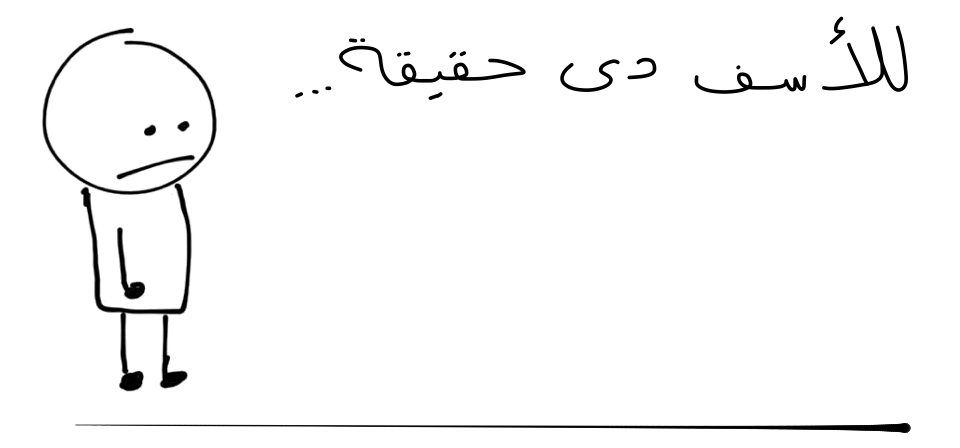 للأسف دى حقيقة...